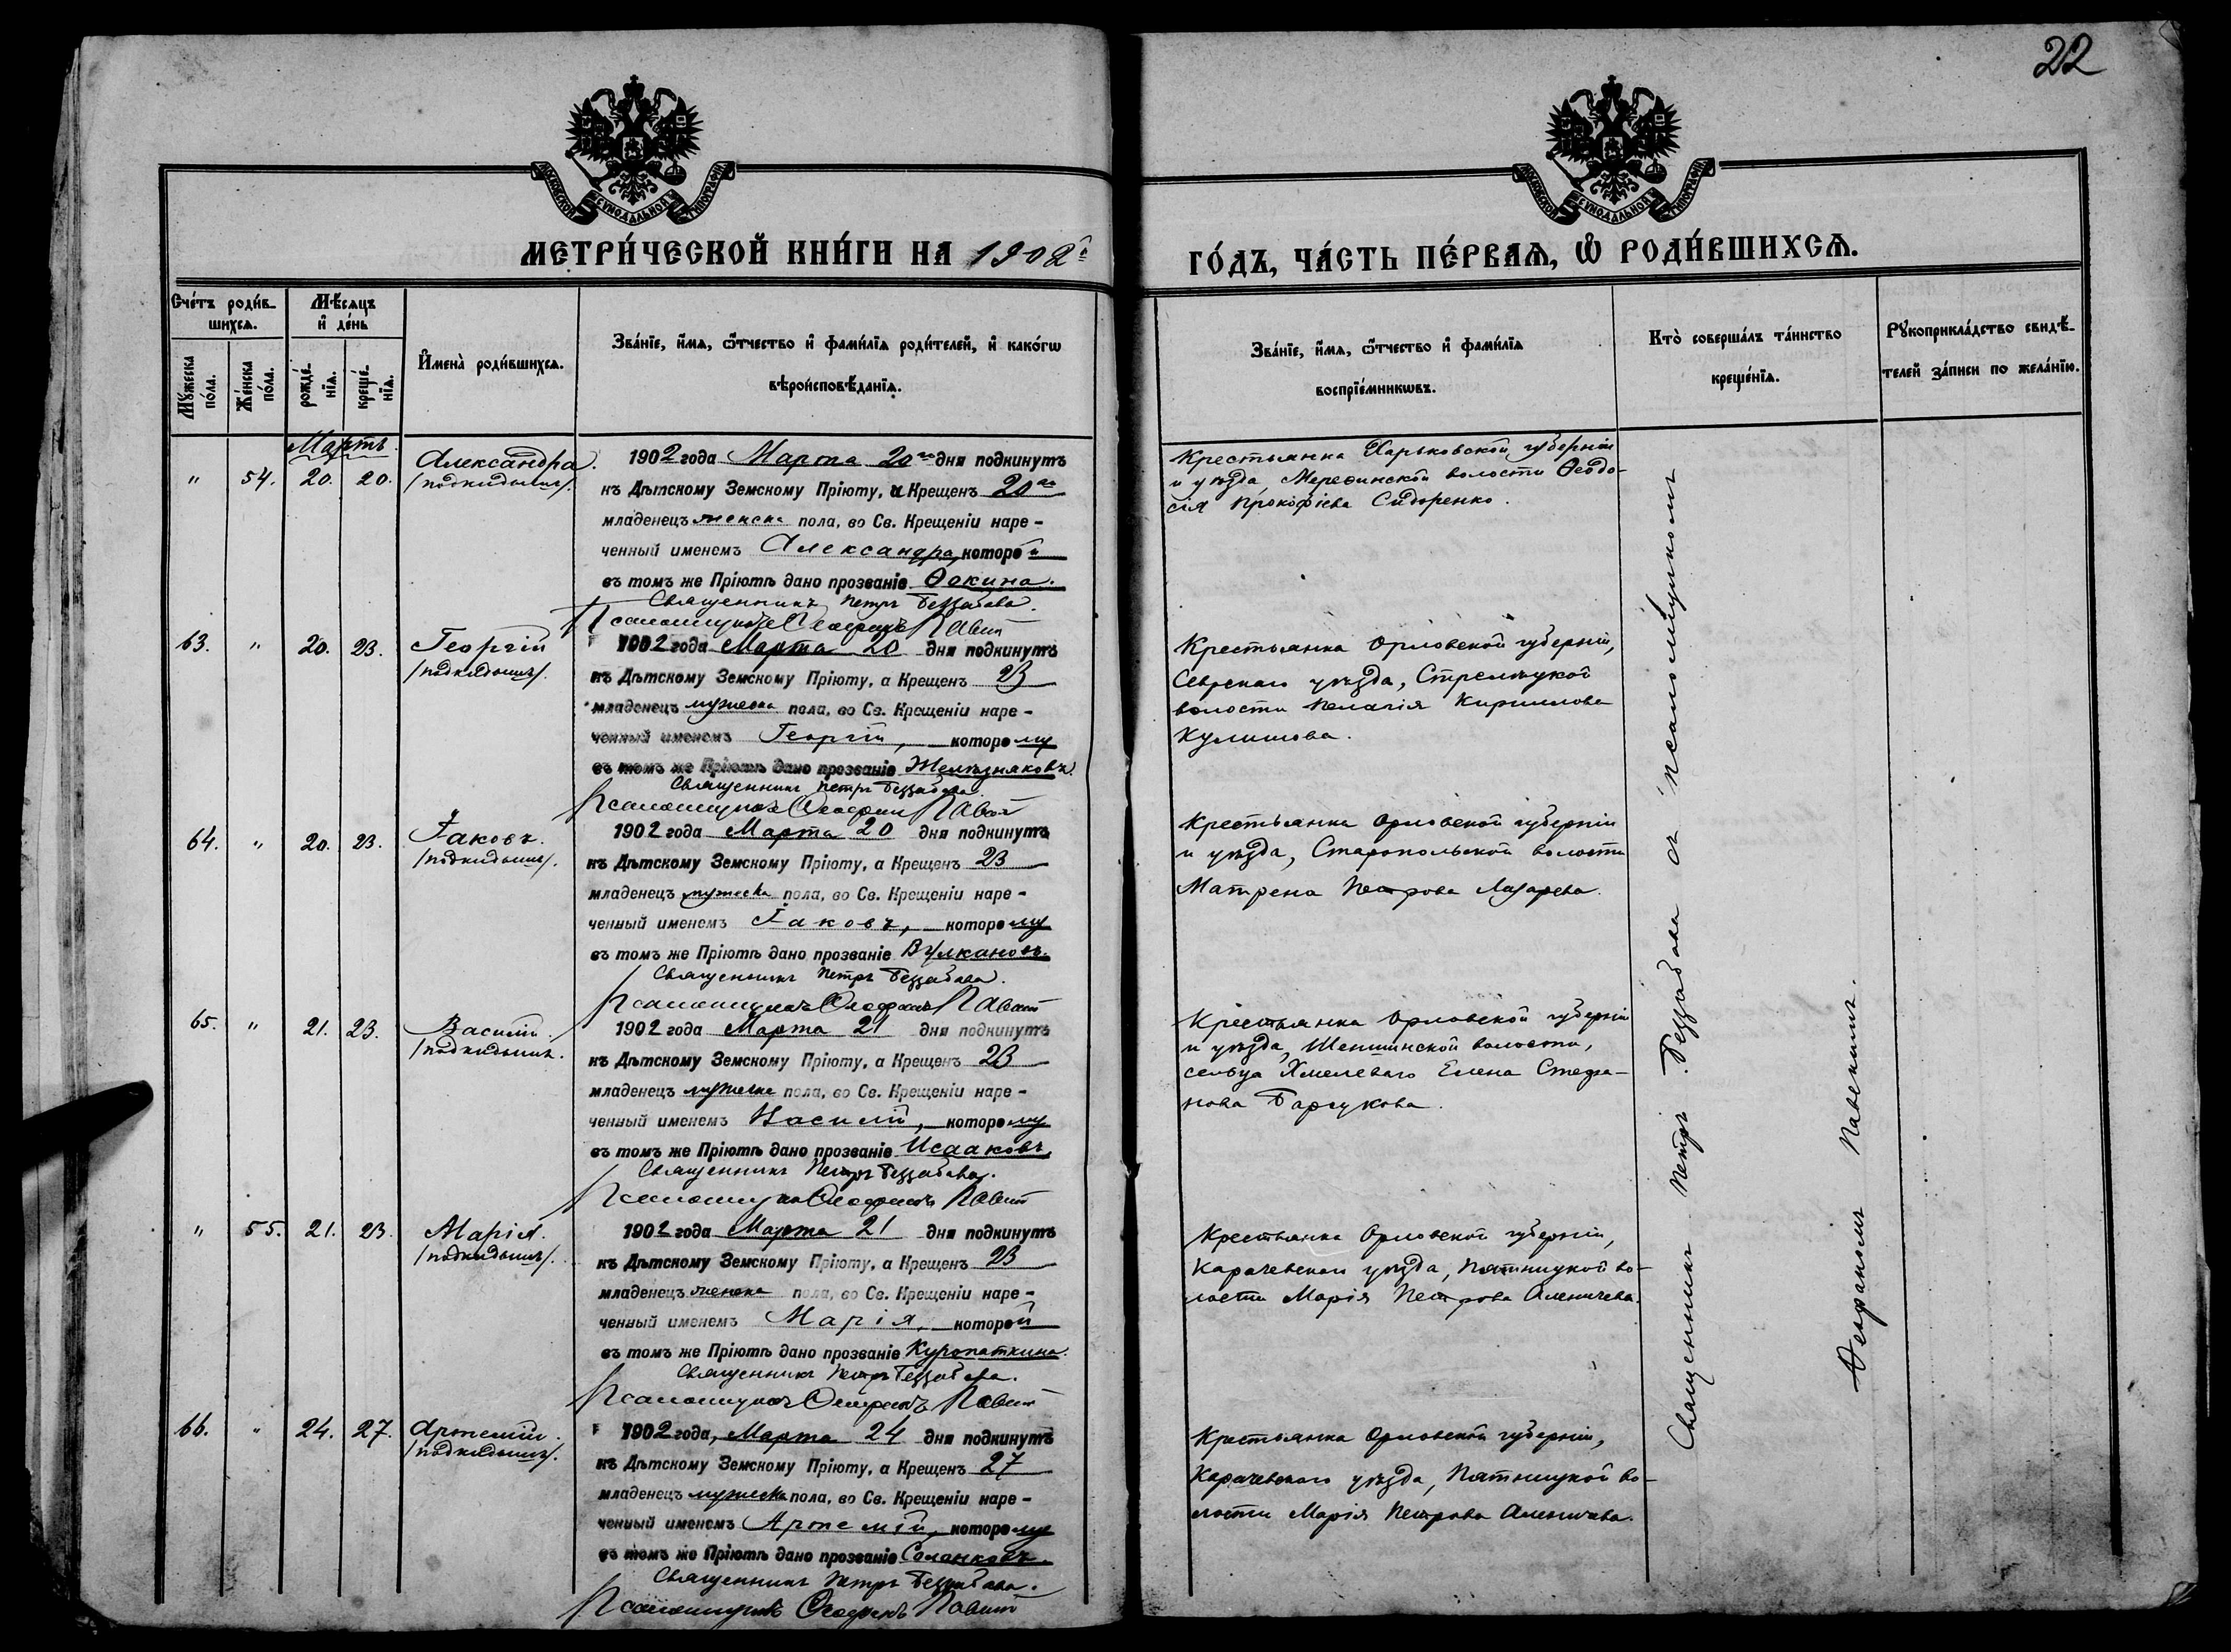 22
МОСКОВСКОЙ СѴНОДАЛЬНОЙ ТИПОГРАФІИ
МОСКОВСКОЙ СѴНОДАЛЬНОЙ ТИПОГРАФІИ
МЕТРИ́ЧЕСКОЙ КНИ́ГИ НА 1902й
ГО́ДЪ, ЧА́СТЬ ПЕ́РВАѦ, Ѡ҆ РОДИ́ВШИХСѦ.
Сче́тъ роди́в-
шихсѧ.
Мѣ́сѧцъ
и҆ де́нь
Мꙋ́жеска по́ла.
Же́нска по́ла.
рожде́-нїѧ.
креще́-нїѧ.
И҆мена̀ роди́вшихсѧ.
Зва́нїе, и҆́мѧ, ѻ҆́тчество и҆ фами́лїѧ роди́телей, и҆ како́гѡ
вѣроисповѣ́данїѧ.
Зва́нїе, и҆́мѧ, ѻ҆́тчество и҆ фами́лїѧ
воспрїе́мникѡвъ.
Кто̀ соверша́лъ та́инство
креще́нїѧ.
Рꙋкоприкла́дство свидѣ́-
телей за́писи по жела́нїю.
Мартъ.
" 54. 20. 20. Александра.
/подкидышъ/.
1902 года Марта 20го дня подкинутъ
къ Дѣтскому Земскому Пріюту, и Крещенъ 20го
младенецъ женска пола, во Св. Крещеніи наре-
ченный именемъ Александра, которой
въ томъ же Пріютѣ дано прозваніе Ѳокина.
Священникъ Петръ Беззабава.
Псаломщикъ
Крестьянка Харьковской губерніи
и уѣзда, Мерефинской волости Ѳеодо-
сія Прокофіева Сидоренко.
63. " 20. 23. Георгій
/подкидышъ/.
1902 года Марта 20 дня подкинутъ
къ Дѣтскому Земскому Пріюту, а Крещенъ 23
младенецъ мужеска пола, во Св. Крещеніи наре-
ченный именемъ Георгій, которому
въ томъ же Пріютѣ дано прозваніе Желѣзняковъ.
Священникъ Петръ Беззабава
Псаломщикъ
Крестьянка Орловской губерніи,
Севскаго уѣзда, Стрелецкой
волости Пелагія Кириллова
Кулишова.
64. " 20. 23. Іаковъ.
/подкидышъ/.
1902 года Марта 20 дня подкинутъ
къ Дѣтскому Земскому Пріюту, а Крещенъ 23
младенецъ мужеска пола, во Св. Крещеніи наре-
ченный именемъ Іаковъ, которому
въ томъ же Пріютѣ дано прозваніе Вулкановъ.
Священникъ Петръ Беззабава.
Псаломщикъ
Крестьянка Орловской губерніи
и уѣзда, Старопольской волости
Матрена Петрова Лазарева.
65. " 21. 23. Василій.
/подкидышъ.
1902 года Марта 21 дня подкинутъ
къ Дѣтскому Земскому Пріюту, а Крещенъ 23
младенецъ мужеска пола, во Св. Крещеніи наре-
ченный именемъ Василій, которому
въ томъ же Пріютѣ дано прозваніе Исааковъ.
Священникъ Петръ Беззабава.
Псаломщикъ
Крестьянка Орловской губерніи
и уѣзда, волости,
сельца Хмелеваго Елена Стефа-
нова Барсукова.
" 55. 21. 23. Марія.
/подкидышъ/.
1902 года Марта 21 дня подкинутъ
къ Дѣтскому Земскому Пріюту, а Крещенъ 23
младенецъ женска пола, во Св. Крещеніи наре-
ченный именемъ Марія, которой
въ томъ же Пріютѣ дано прозваніе Куропаткина.
Священникъ Петръ Беззабава.
Псаломщикъ
Крестьянка Орловской губерніи,
Карачевскаго уѣзда, Пятницкой во-
лости Марія Петрова Аленичева.
66. " 24. 27. Артемій.
/подкидышъ/.
1902 года, Марта 24 дня подкинутъ
къ Дѣтскому Земскому Пріюту, а Крещенъ 27
младенецъ мужеска пола, во Св. Крещеніи наре-
ченный именемъ Артемій, которому
въ томъ же Пріютѣ дано прозваніе
Священникъ Петръ Беззабава.
Псаломщикъ
Крестьянка Орловской губерніи,
Карачевскаго уѣзда, Пятницкой во-
лости Марія Петрова Аленичева.
Священникъ Петръ Беззабава съ псаломщикомъ